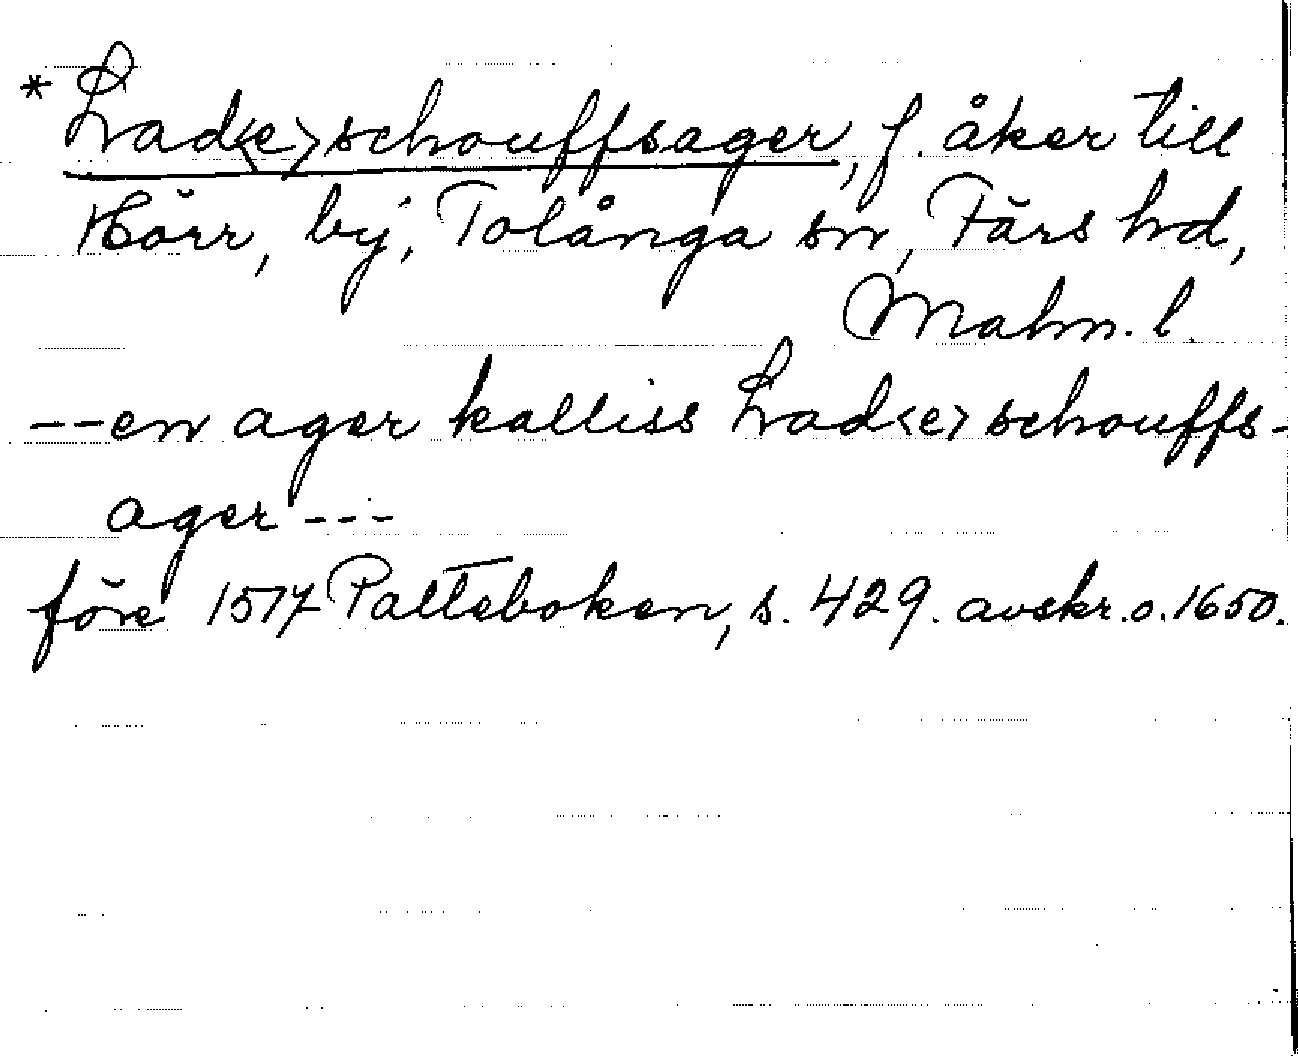 * Lad<e>schouffsager, f. åker till
Hörr, by, Tolånga sn, Färs hd,
Malm. l.
--en ager kalliss Lad<e>schouffs-
ager ---
före 1517 Palteboken, s. 429. avskr. o. 1650.